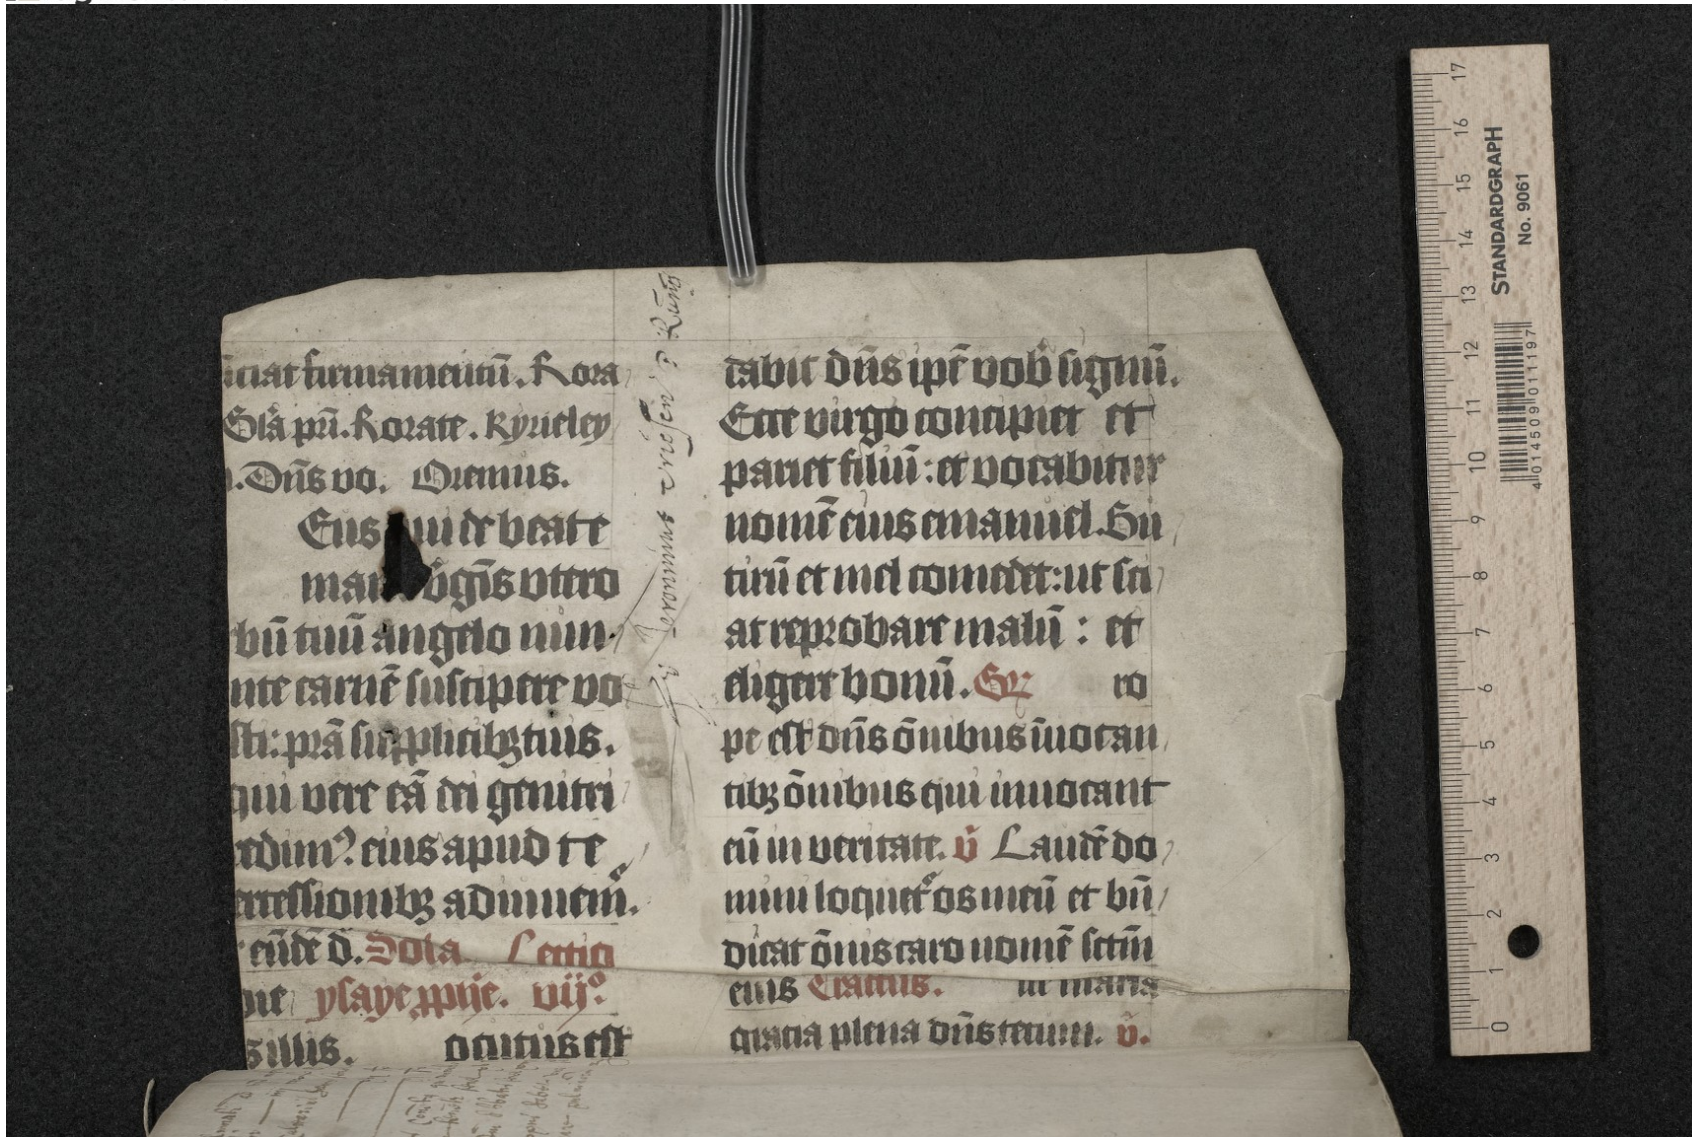 ciat firmamentū. Rora
Glā pri. Rorate. kyrieley
n. Dn̄s vo. Oremus.
Eus qui de beate
mar v̓gīs vtero
bū tuū angelo nun
nte carnē suscipere vo
sti: prā supplicibꝫ tuis.
qui vere eā dei genitri
edim⁹ eius apud te
ercessionibꝫ adiuuem̓.
eūdē d. Sola Lectio
ne ysaye ꝓphe. vijº.
s illis. ocutus est
tabit dn̄s ip̄e vob̓ signū.
Ecce virgo concipiet et
pariet filiū: et vocabitur
nomē eius emanuel. Bu
tirū et mel comedet: ut sci
at reprobare malū: et
eligere bonū. Gr̄ ro
pe est dn̄s ōnibus īuocan
tibꝫ ōnibus qui inuocant
eū in veritate. v̄ Laudē do
mini loquet̓ os meū et bn̄
dicat ōnis caro nomē sctm̄
eius Tractus. ue maria
gracia plena dn̄s tecum. v̄.
STANDARDGRAPH
No. 9061
4 014509 011197
17
16
15
14
13
12
11
10
9
8
7
6
5
4
3
2
1
0